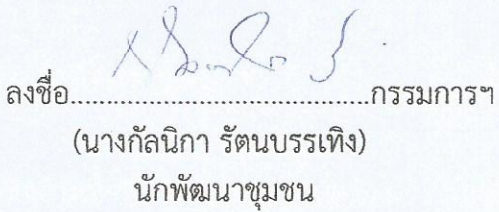 ลงชื่อ........................................กรรมการฯ
(นางกัลนิกา รัตนบรรเทิง)
นักพัฒนาชุมชน